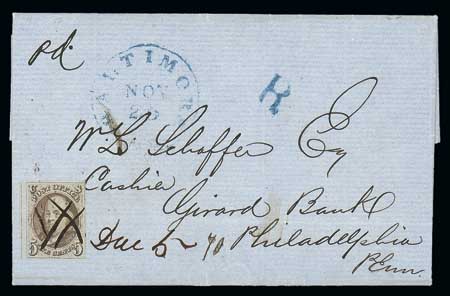 pd.
BALTIMOR
NOV
26
R
W. L. Schaffer Esq
Cashier
Girard Bank
Due 5 Philadelphia
Penn.
POST OFFICE
5 5